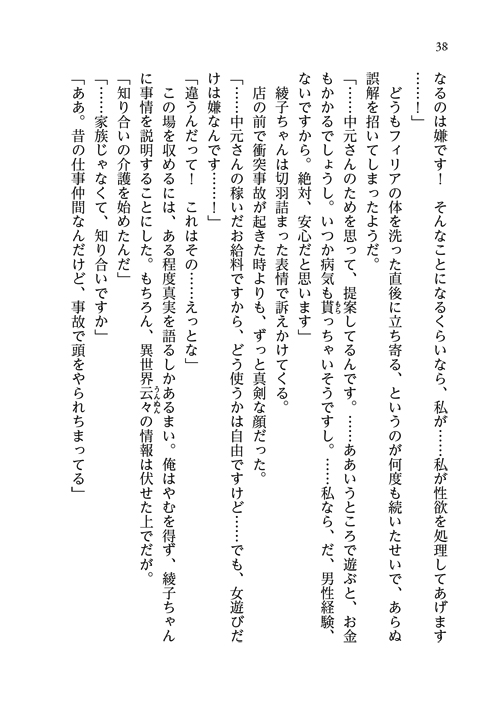 38
なるのは嫌です！　そんなことになるくらいなら、私が……私が性欲を処理してあげます
……！」
　どうもフィリアの体を洗った直後に立ち寄る、というのが何度も続いたせいで、あらぬ
誤解を招いてしまったようだ。
「……中元さんのためを思って、提案してるんです。……ああいうところで遊ぶと、お金
もかかるでしょうし。いつか病気も貰っちゃいそうですし。……私なら、だ、男性経験、
ないですから。絶対、安心だと思います」
　綾子ちゃんは切羽詰まった表情で訴えかけてくる。
　店の前で衝突事故が起きた時よりも、ずっと真剣な顔だった。
「……中元さんの稼いだお給料ですから、どう使うかは自由ですけど……でも、女遊びだ
けは嫌なんです……！」
「違うんだって！　これはその……えっとな」
　この場を収めるには、ある程度真実を語るしかあるまい。俺はやむを得ず、綾子ちゃん
に事情を説明することにした。もちろん、異世界云々の情報は伏せた上でだが。
「知り合いの介護を始めたんだ」
「……家族じゃなくて、知り合いですか」
「ああ。昔の仕事仲間なんだけど、事故で頭をやられちまってる」